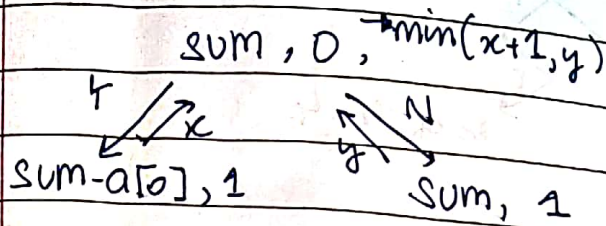 sum, 0, min(x+1,y)
Y x y N
sum-a[0], 1 sum, 1